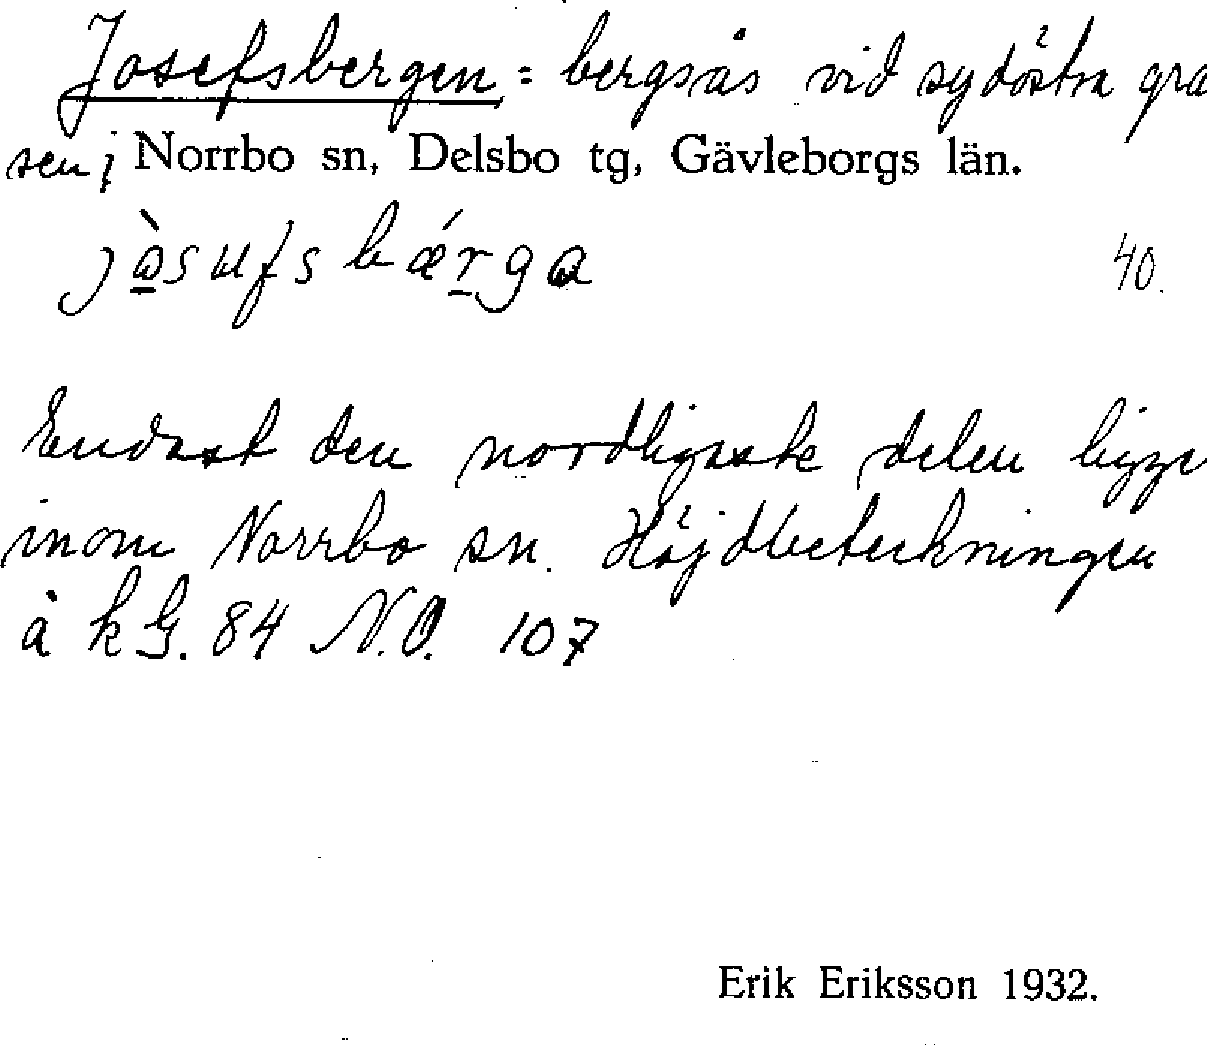 Josefsbergen = bergsås vid sydöstra grä
sen i Norrbo sn, Delsbo tg, Gävleborgs län.
jòsufsbǽrga 40.
Endast den nordligaste delen ligge
inom Norrbo sn. Höjdbeteckningen
à kG. 84 N.O. 107
Erik Eriksson 1932.